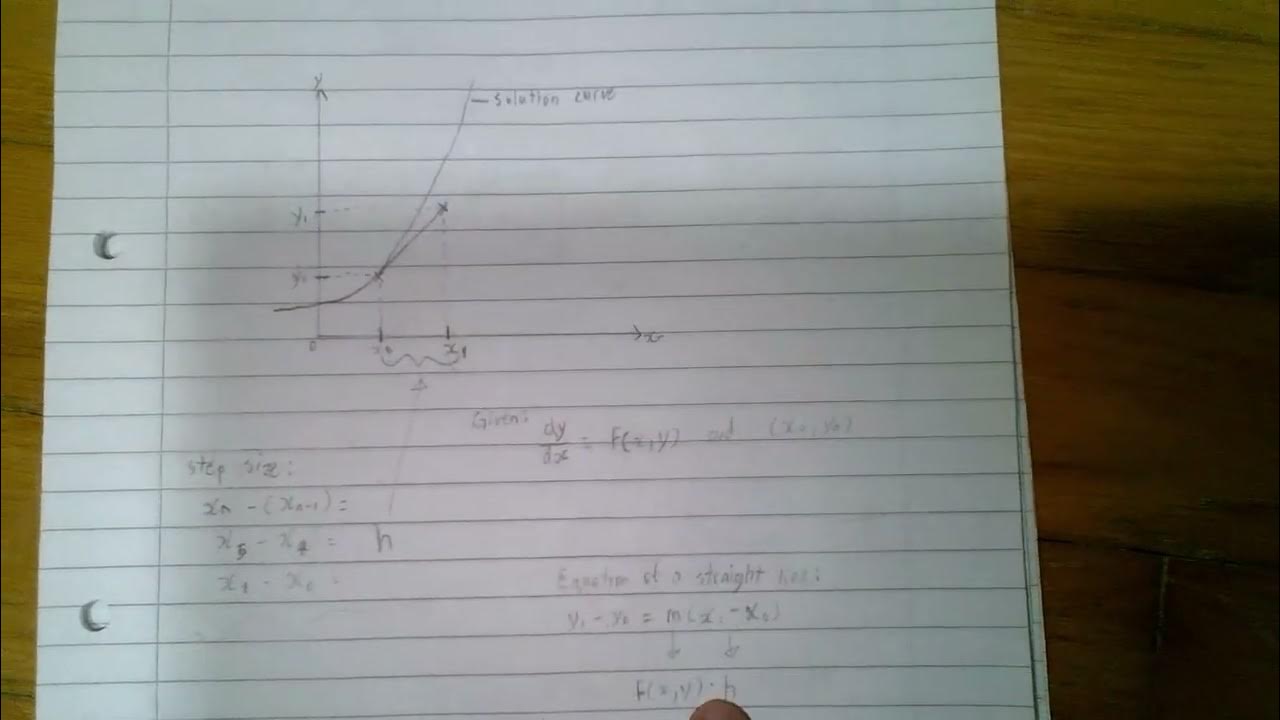 y
solution curve
y₁
y₀
0 x₀ x₁ x
Given: dy/dx = F(x,y) and (x₀,y₀)
step size:
xₙ - (xₙ₋₁) =
x₅ - x₄ = h
x₁ - x₀ =
Equation of a straight line:
y₁ - y₀ = m(x₁ - x₀)
F(x,y) · h